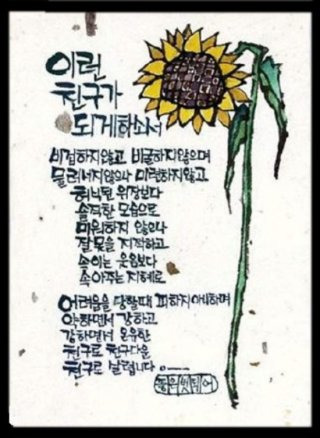 이런
친구가
되게하소서
비겁하지않고 비굴하지않으며
물러서지않으나 미련하지않고
허식된 위장보다
솔직한 모습으로
미워하지 않으나
잘못을 지적하고
속이는 웃음보다
속아주는 지혜로
어려움을 당할때 피하지아니하며
약하면서 강하고
강하면서 온유한
친구로 친구다운
친구로 살렵니다